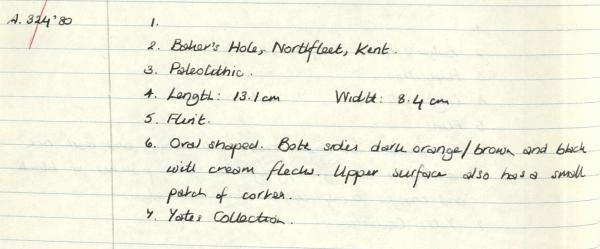 A. 324'80
1.
2. Baker's Hole, Northfleet, Kent.
3. Paleolithic.
4. Length: 13.1cm Width: 8.4 cm
5. Flint.
6. Oval shaped. Both sides dark orange/brown and black
with cream flecks. Upper surface also has a small
patch of cortex.
7. Yates Collection.